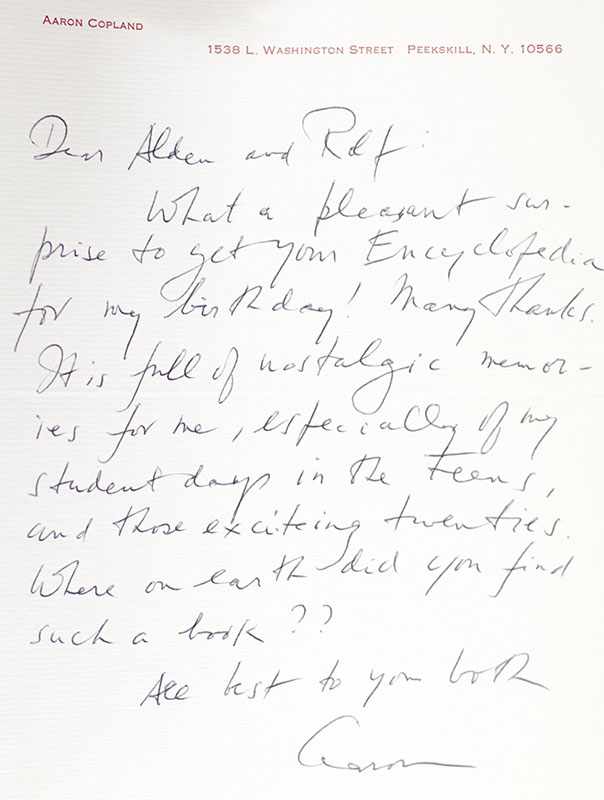 Aaron Copland
1538 L. Washington Street Peekskill, N. Y. 10566
Dear Alden and Rolf:
What a pleasant sur-
prise to get your Encyclopedia
for my birthday! Many thanks.
It is full of nostalgic memor-
ies for me, especially of my
student days in the Teens,
and those exciteing twenties.
Where on earth did you find
such a book??
All best to you both
Aaron